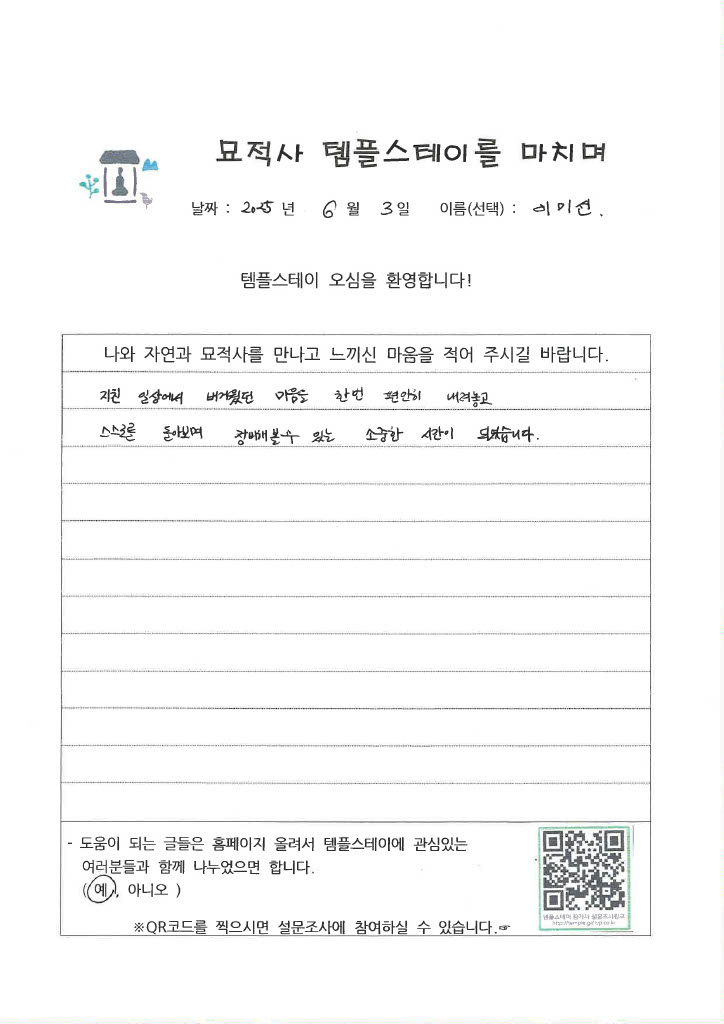 묘적사 템플스테이를 마치며
날짜 : 2025 년 6 월 3 일 이름(선택) : 이미선.
템플스테이 오심을 환영합니다!
나와 자연과 묘적사를 만나고 느끼신 마음을 적어 주시길 바랍니다.
지친 일상에서 버거웠던 마음을 한번 편안히 내려놓고
스스로를 돌아보며 장비해볼수 있는 소중한 시간이 되었습니다.
- 도움이 되는 글들은 홈페이지 올려서 템플스테이에 관심있는
여러분들과 함께 나누었으면 합니다.
( 예 , 아니오 )
템플스테이 참가자 설문조사링크
※QR코드를 찍으시면 설문조사에 참여하실 수 있습니다.☞